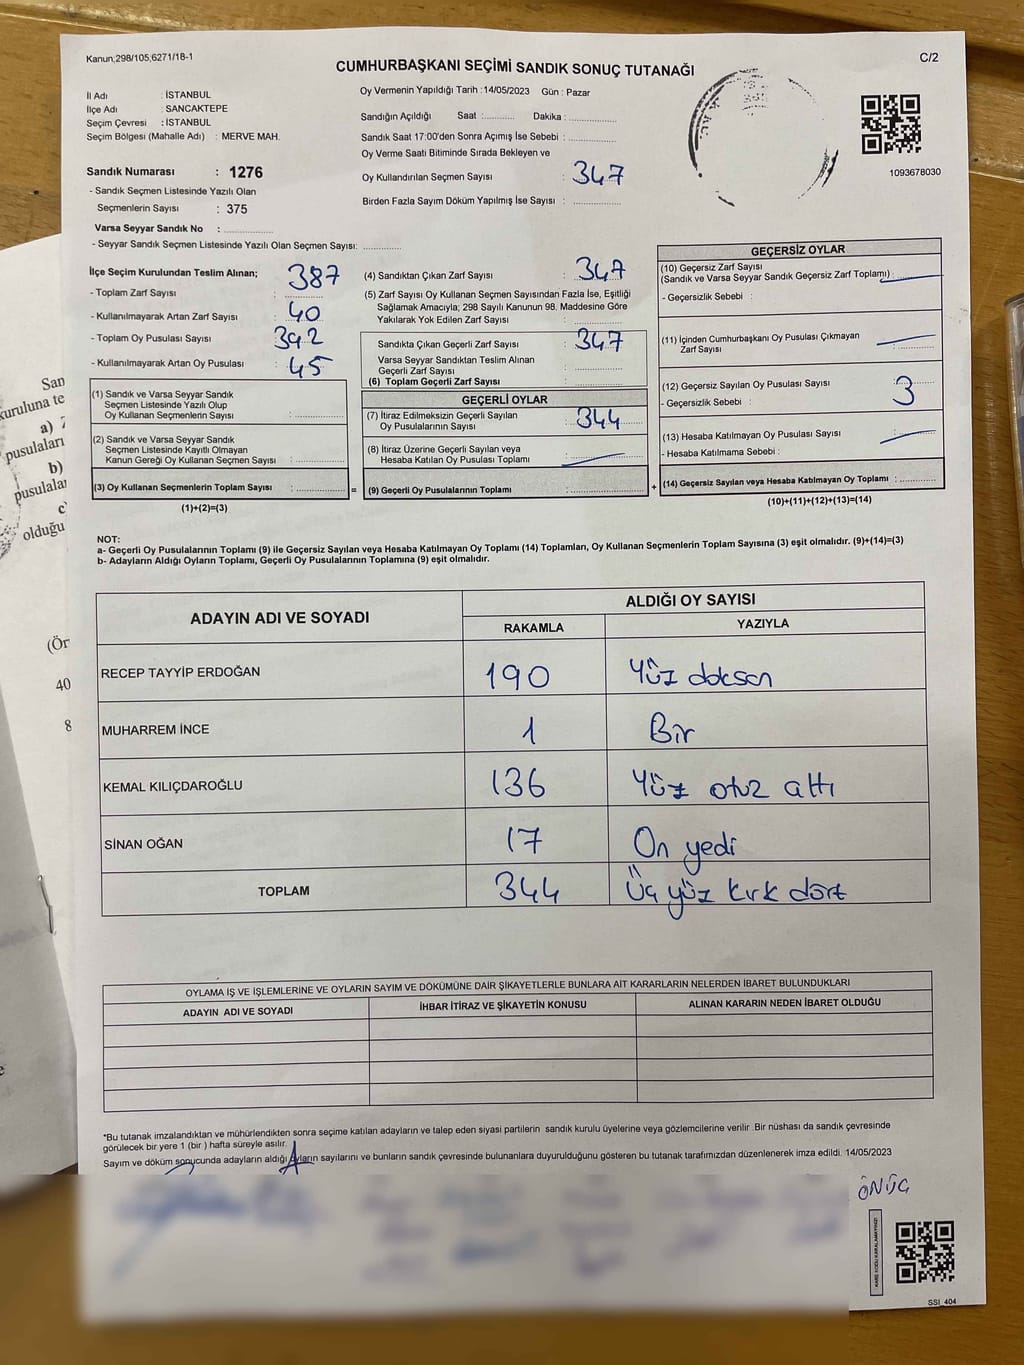 Kanun;298/105;6271/18-1
C/2
CUMHURBAŞKANI SEÇİMİ SANDIK SONUÇ TUTANAĞI
İl Adı : İSTANBUL
İlçe Adı : SANCAKTEPE
Seçim Çevresi : İSTANBUL
Seçim Bölgesi (Mahalle Adı) : MERVE MAH.
Sandık Numarası : 1276
- Sandık Seçmen Listesinde Yazılı Olan
Seçmenlerin Sayısı : 375
Varsa Seyyar Sandık No :
- Seyyar Sandık Seçmen Listesinde Yazılı Olan Seçmen Sayısı:
Oy Vermenin Yapıldığı Tarih :14/05/2023 Gün : Pazar
Sandığın Açıldığı Saat : Dakika :
Sandık Saat 17:00'den Sonra Açımış İse Sebebi :
Oy Verme Saati Bitiminde Sırada Bekleyen ve
Oy Kullandırılan Seçmen Sayısı : 347
Birden Fazla Sayım Döküm Yapılmış İse Sayısı :
1093678030
İlçe Seçim Kurulundan Teslim Alınan;
- Toplam Zarf Sayısı : 387
- Kullanılmayarak Artan Zarf Sayısı : 40
- Toplam Oy Pusulası Sayısı : 392
- Kullanılmayarak Artan Oy Pusulası : 45
(1) Sandık ve Varsa Seyyar Sandık
Seçmen Listesinde Yazılı Olup
Oy Kullanan Seçmenlerin Sayısı :
(2) Sandık ve Varsa Seyyar Sandık
Seçmen Listesinde Kayıtlı Olmayan
Kanun Gereği Oy Kullanan Seçmen Sayısı :
(3) Oy Kullanan Seçmenlerin Toplam Sayısı :
(1)+(2)=(3)
(4) Sandıktan Çıkan Zarf Sayısı : 347
(5) Zarf Sayısı Oy Kullanan Seçmen Sayısından Fazla İse, Eşitliği
Sağlamak Amacıyla; 298 Sayılı Kanunun 98. Maddesine Göre
Yakılarak Yok Edilen Zarf Sayısı :
Sandıkta Çıkan Geçerli Zarf Sayısı : 347
Varsa Seyyar Sandıktan Teslim Alınan
Geçerli Zarf Sayısı :
(6) Toplam Geçerli Zarf Sayısı :
GEÇERLİ OYLAR
(7) İtiraz Edilmeksizin Geçerli Sayılan
Oy Pusulalarının Sayısı : 344
(8) İtiraz Üzerine Geçerli Sayılan veya
Hesaba Katılan Oy Pusulası Toplamı :
= (9) Geçerli Oy Pusulalarının Toplamı :
GEÇERSİZ OYLAR
(10) Geçersiz Zarf Sayısı
(Sandık ve Varsa Seyyar Sandık Geçersiz Zarf Toplamı) :
- Geçersizlik Sebebi :
(11) İçinden Cumhurbaşkanı Oy Pusulası Çıkmayan
Zarf Sayısı :
(12) Geçersiz Sayılan Oy Pusulası Sayısı : 3
- Geçersizlik Sebebi :
(13) Hesaba Katılmayan Oy Pusulası Sayısı :
- Hesaba Katılmama Sebebi :
+ (14) Geçersiz Sayılan veya Hesaba Katılmayan Oy Toplamı :
(10)+(11)+(12)+(13)=(14)
NOT:
a- Geçerli Oy Pusulalarının Toplamı (9) ile Geçersiz Sayılan veya Hesaba Katılmayan Oy Toplamı (14) Toplamları, Oy Kullanan Seçmenlerin Toplam Sayısına (3) eşit olmalıdır. (9)+(14)=(3)
b- Adayların Aldığı Oyların Toplamı, Geçerli Oy Pusulalarının Toplamına (9) eşit olmalıdır.
ADAYIN ADI VE SOYADI
ALDIĞI OY SAYISI
RAKAMLA YAZIYLA
RECEP TAYYİP ERDOĞAN 190 Yüz doksan
MUHARREM İNCE 1 Bir
KEMAL KILIÇDAROĞLU 136 Yüz otuz altı
SİNAN OĞAN 17 On yedi
TOPLAM 344 Üç yüz kırk dört
OYLAMA İŞ VE İŞLEMLERİNE VE OYLARIN SAYIM VE DÖKÜMÜNE DAİR ŞİKAYETLERLE BUNLARA AİT KARARLARIN NELERDEN İBARET BULUNDUKLARI
ADAYIN ADI VE SOYADI
İHBAR İTİRAZ VE ŞİKAYETİN KONUSU
ALINAN KARARIN NEDEN İBARET OLDUĞU
*Bu tutanak imzalandıktan ve mühürlendikten sonra seçime katılan adayların ve talep eden siyasi partilerin sandık kurulu üyelerine veya gözlemcilerine verilir. Bir nüshası da sandık çevresinde
görülecek bir yere 1 (bir ) hafta süreyle asılır.
Sayım ve döküm sonucunda adayların aldığı oyların sayılarını ve bunların sandık çevresinde bulunanlara duyurulduğunu gösteren bu tutanak tarafımızdan düzenlenerek imza edildi. 14/05/2023
ÖNÜÇ
KARE KODU KARALAMAYINIZ!
SSI_404
San
kuruluna te
a)
pusulaları
b)
pusulalar
c)
olduğu
(Ör
40
8